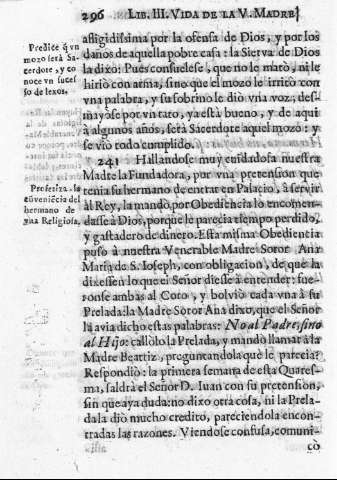 296 LIB. III. VIDA DE LA V. MADRE
afligidissima por la ofensa de Dios, y por los
daños de aquella pobre casa: la Sierva de Dios
la dixo: Pues consuelese, que no le matò, ni le
hiriò con arma, sino que el mozo le irritò con
vna palabra, y su sobrino le diò vna voz, des-
mayose por vn rato, ya està bueno, y de aqui
à algunos años, serà Sacerdote aquel mozo: y
se viò todo cumplido.
Predice q̃ vn
mozo serà Sa-
cerdote, y co
noce vn suces
so de lexos.
241 Hallandose muy cuidadosa nuestra
Madre la Fundadora, por vna pretension que
tenia su hermano de entrar en Palacio, à servir
al Rey, la mandò por Obediencia lo encomen-
dasse à Dios, porque le parecia tiempo perdido,
y gastadero de dinero. Esta misma Obediencia
puso à nuestra Venerable Madre Soror Ana
Maria de S. Ioseph, con obligacion, de que la
dixessen lo que el Señor diesse à entender: fue-
ronse ambas al Coro, y bolviò cada vna à su
Prelada: la Madre Soror Ana dixo, que el Señor
la avia dicho estas palabras: No al Padre, sino
al Hijo: callòlo la Prelada, y mandò llamar à la
Madre Beatriz, preguntandola què le parecia?
Respondiò: la primera semana de esta Quares-
ma, saldrà el Señor D. Iuan con su pretension,
sin que aya duda: no dixo otra cosa, ni la Prela-
da la diò mucho credito, pareciendola encon-
tradas las razones. Viendose confusa, comuni-
cò
Profetiza la
cõveniẽcia del
hermano de
vna Religiosa.